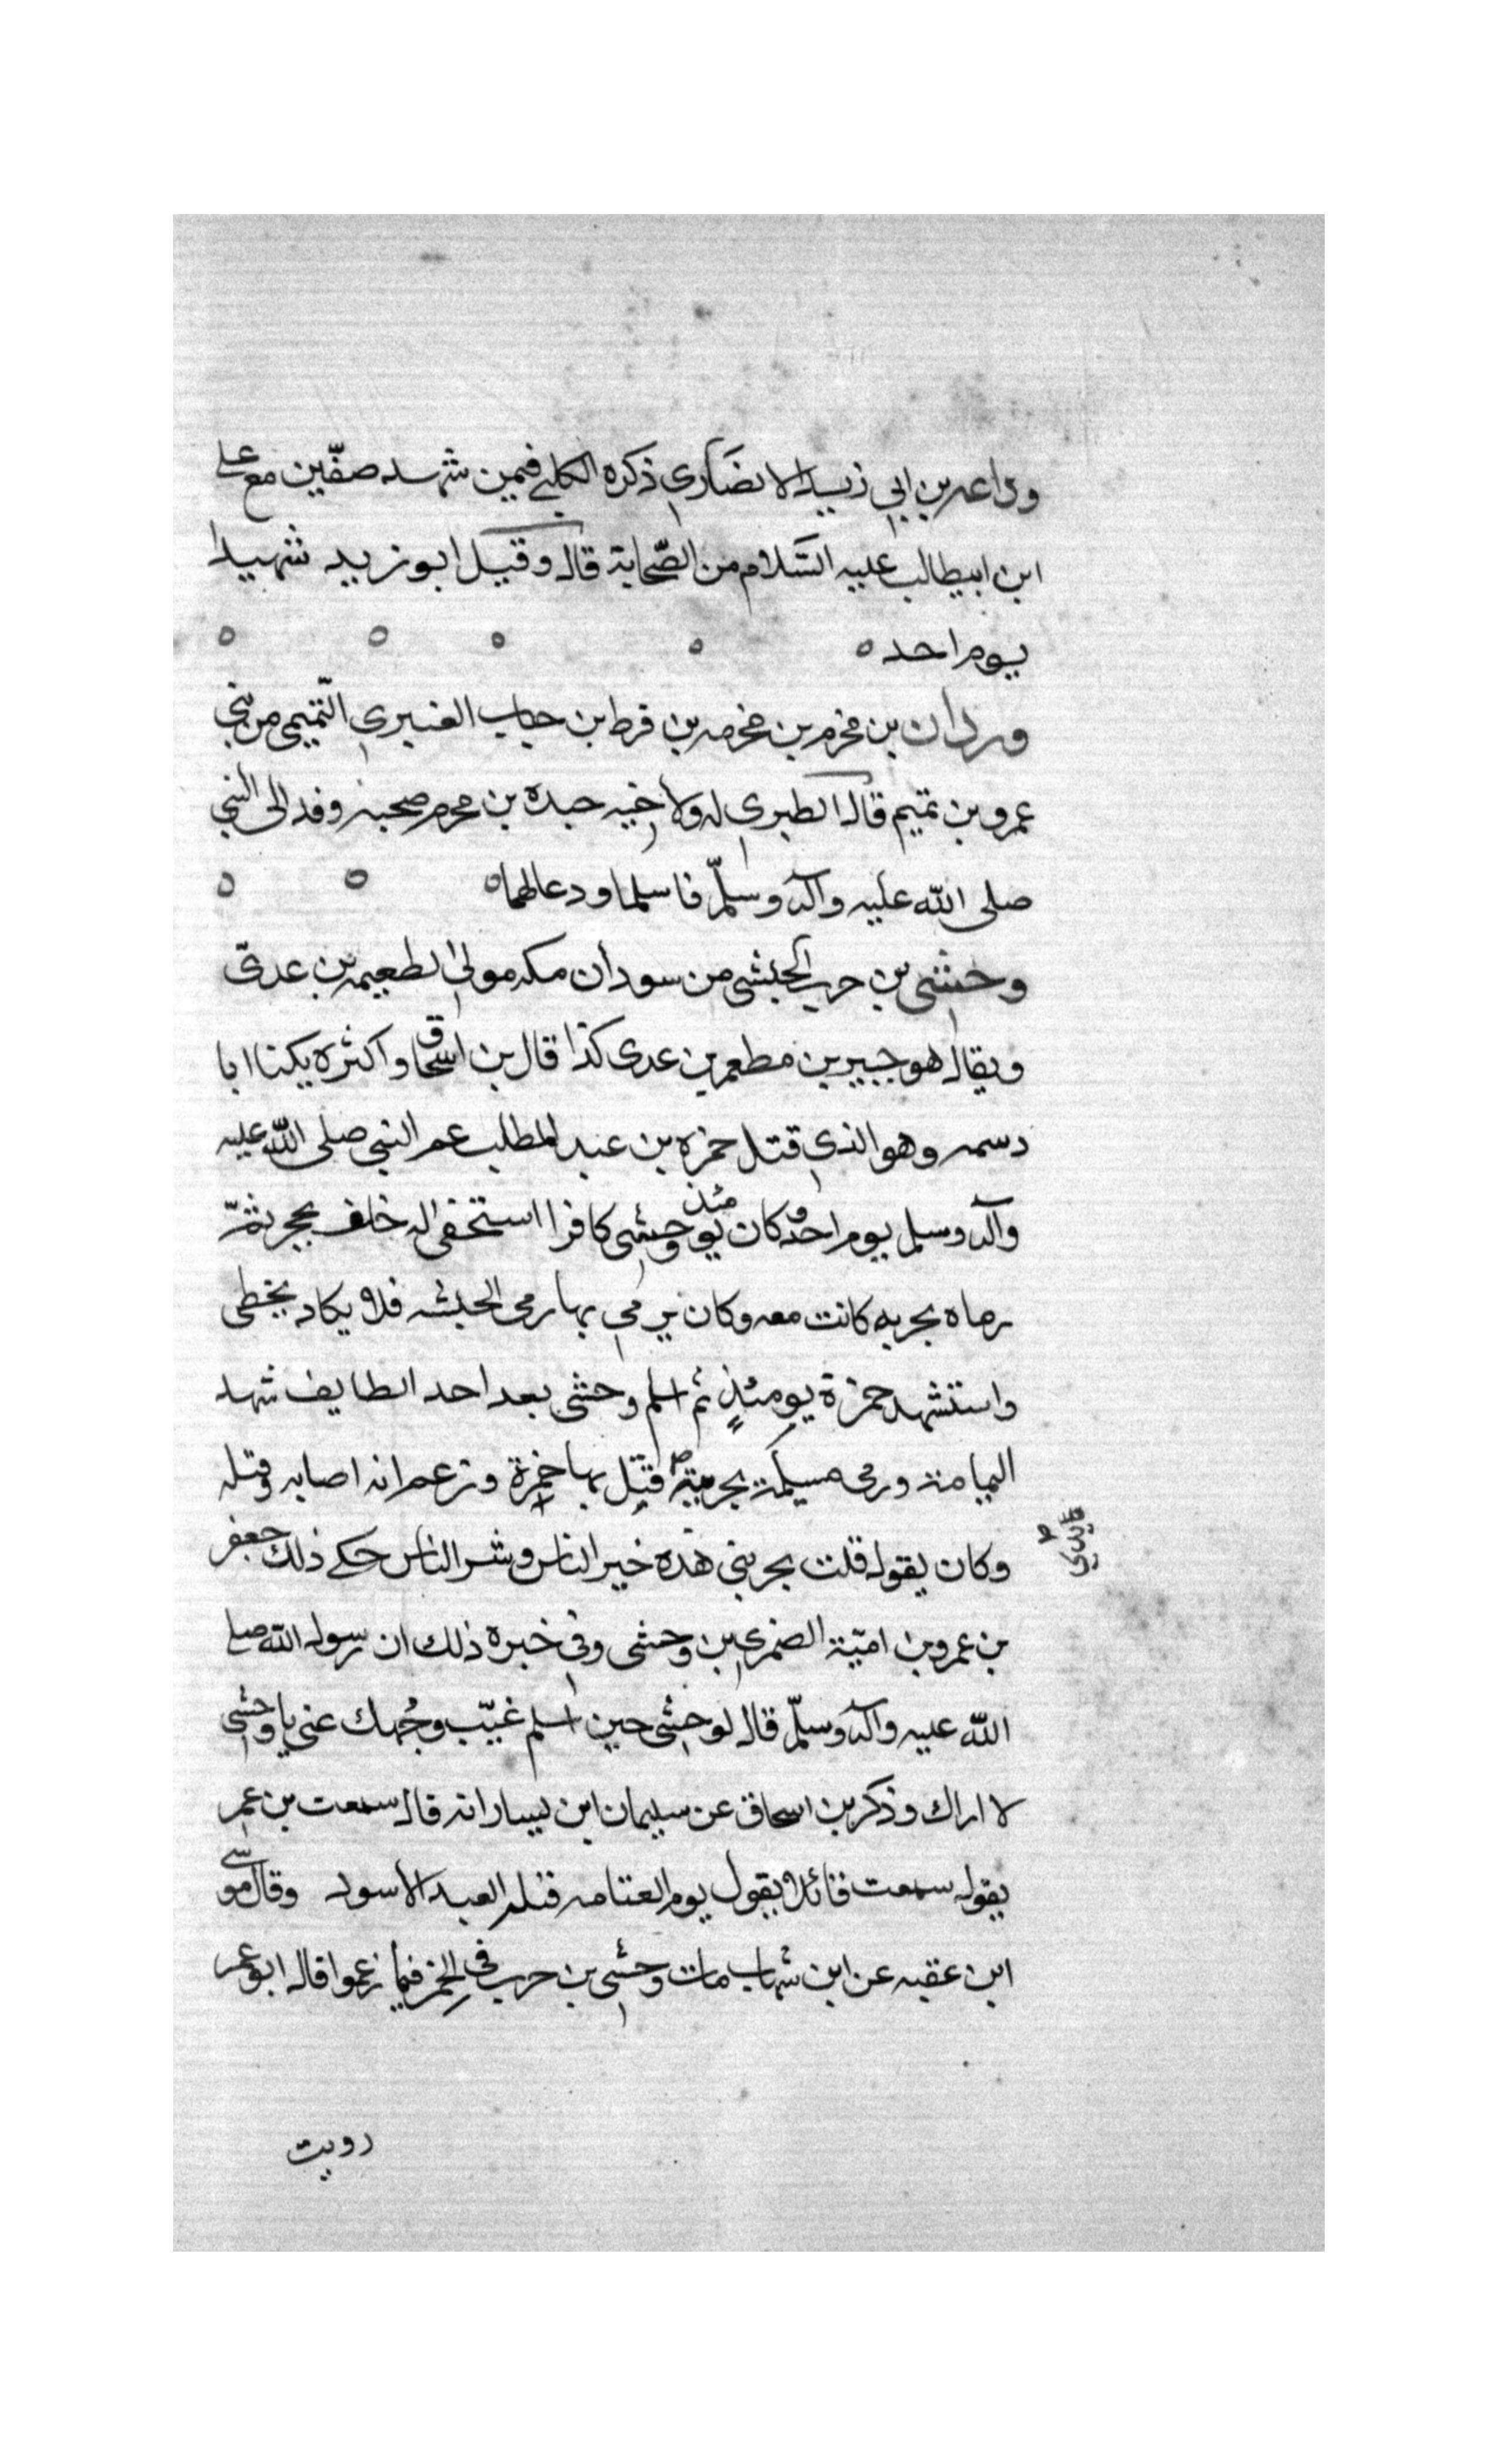 وداعه بن ابي زيد الانصاري ذكره الكلبي فيمن شهد صفّين مع علي
ابن ابيطالب عليه السّلام من الصّحابة قال وقتل ابو زيد شهيدا
يوم احد ه
وردان بن مخرم بن مخرمه بن قرط بن جناب العنبري التّميمي من بني
عمرو بن تميم قال الطبري له ولاخيه حيدة بن مخرم صحبه وفدا الى النبي
صلى الله عليه وآله وسلّم فاسلما ودعا لهما ه
وحشي بن حرب الحبشي من سودان مكه مولى لطعيمه بن عدىّ
ويقال هو جبير بن مطعم بن عدى كذا قال بن اسحاق واكثره يكنا ابا
دسمه وهو الذي قتل حمزه بن عبد المطلب عم النبي صلى الله عليه
وآله وسلم يوم احد وكان يومئذ وحشي كافرا استخفى له خلف حجر ثمّ
رماه بحربه كانت معه وكان يرمي بها رمي الحبشه فلا يكاد يخطى
واستشهد حمزة يومئذٍ ثم اسلم وحشى بعد احد الطايف شهد
اليمامة ورمى مسيلمة بحربته قتل بها حمزة وزعم انه اصابه وقتله
وكان يقول قتلت بحربتي هذه خير الناس وشر الناس حكى ذلك جعفر
بن عمرو بن اميّة الضمري بن وحشى وفي خبره ذلك ان رسول الله صلى
الله عليه وآله وسلّم قال لوحشي حين اسلم غيّب وجهك عني يا وحشي
لا اراك وذكر بن اسحاق عن سليمان ابن يسار انه قال سمعت بن عمر
يقول سمعت قائلا يقول يوم قتله العبد الاسود وقال موسى
ابن عقبه عن ابن شهاب مات وحشي بن حرب في الخمر فيما زعموا قال ابو عمر
رويت